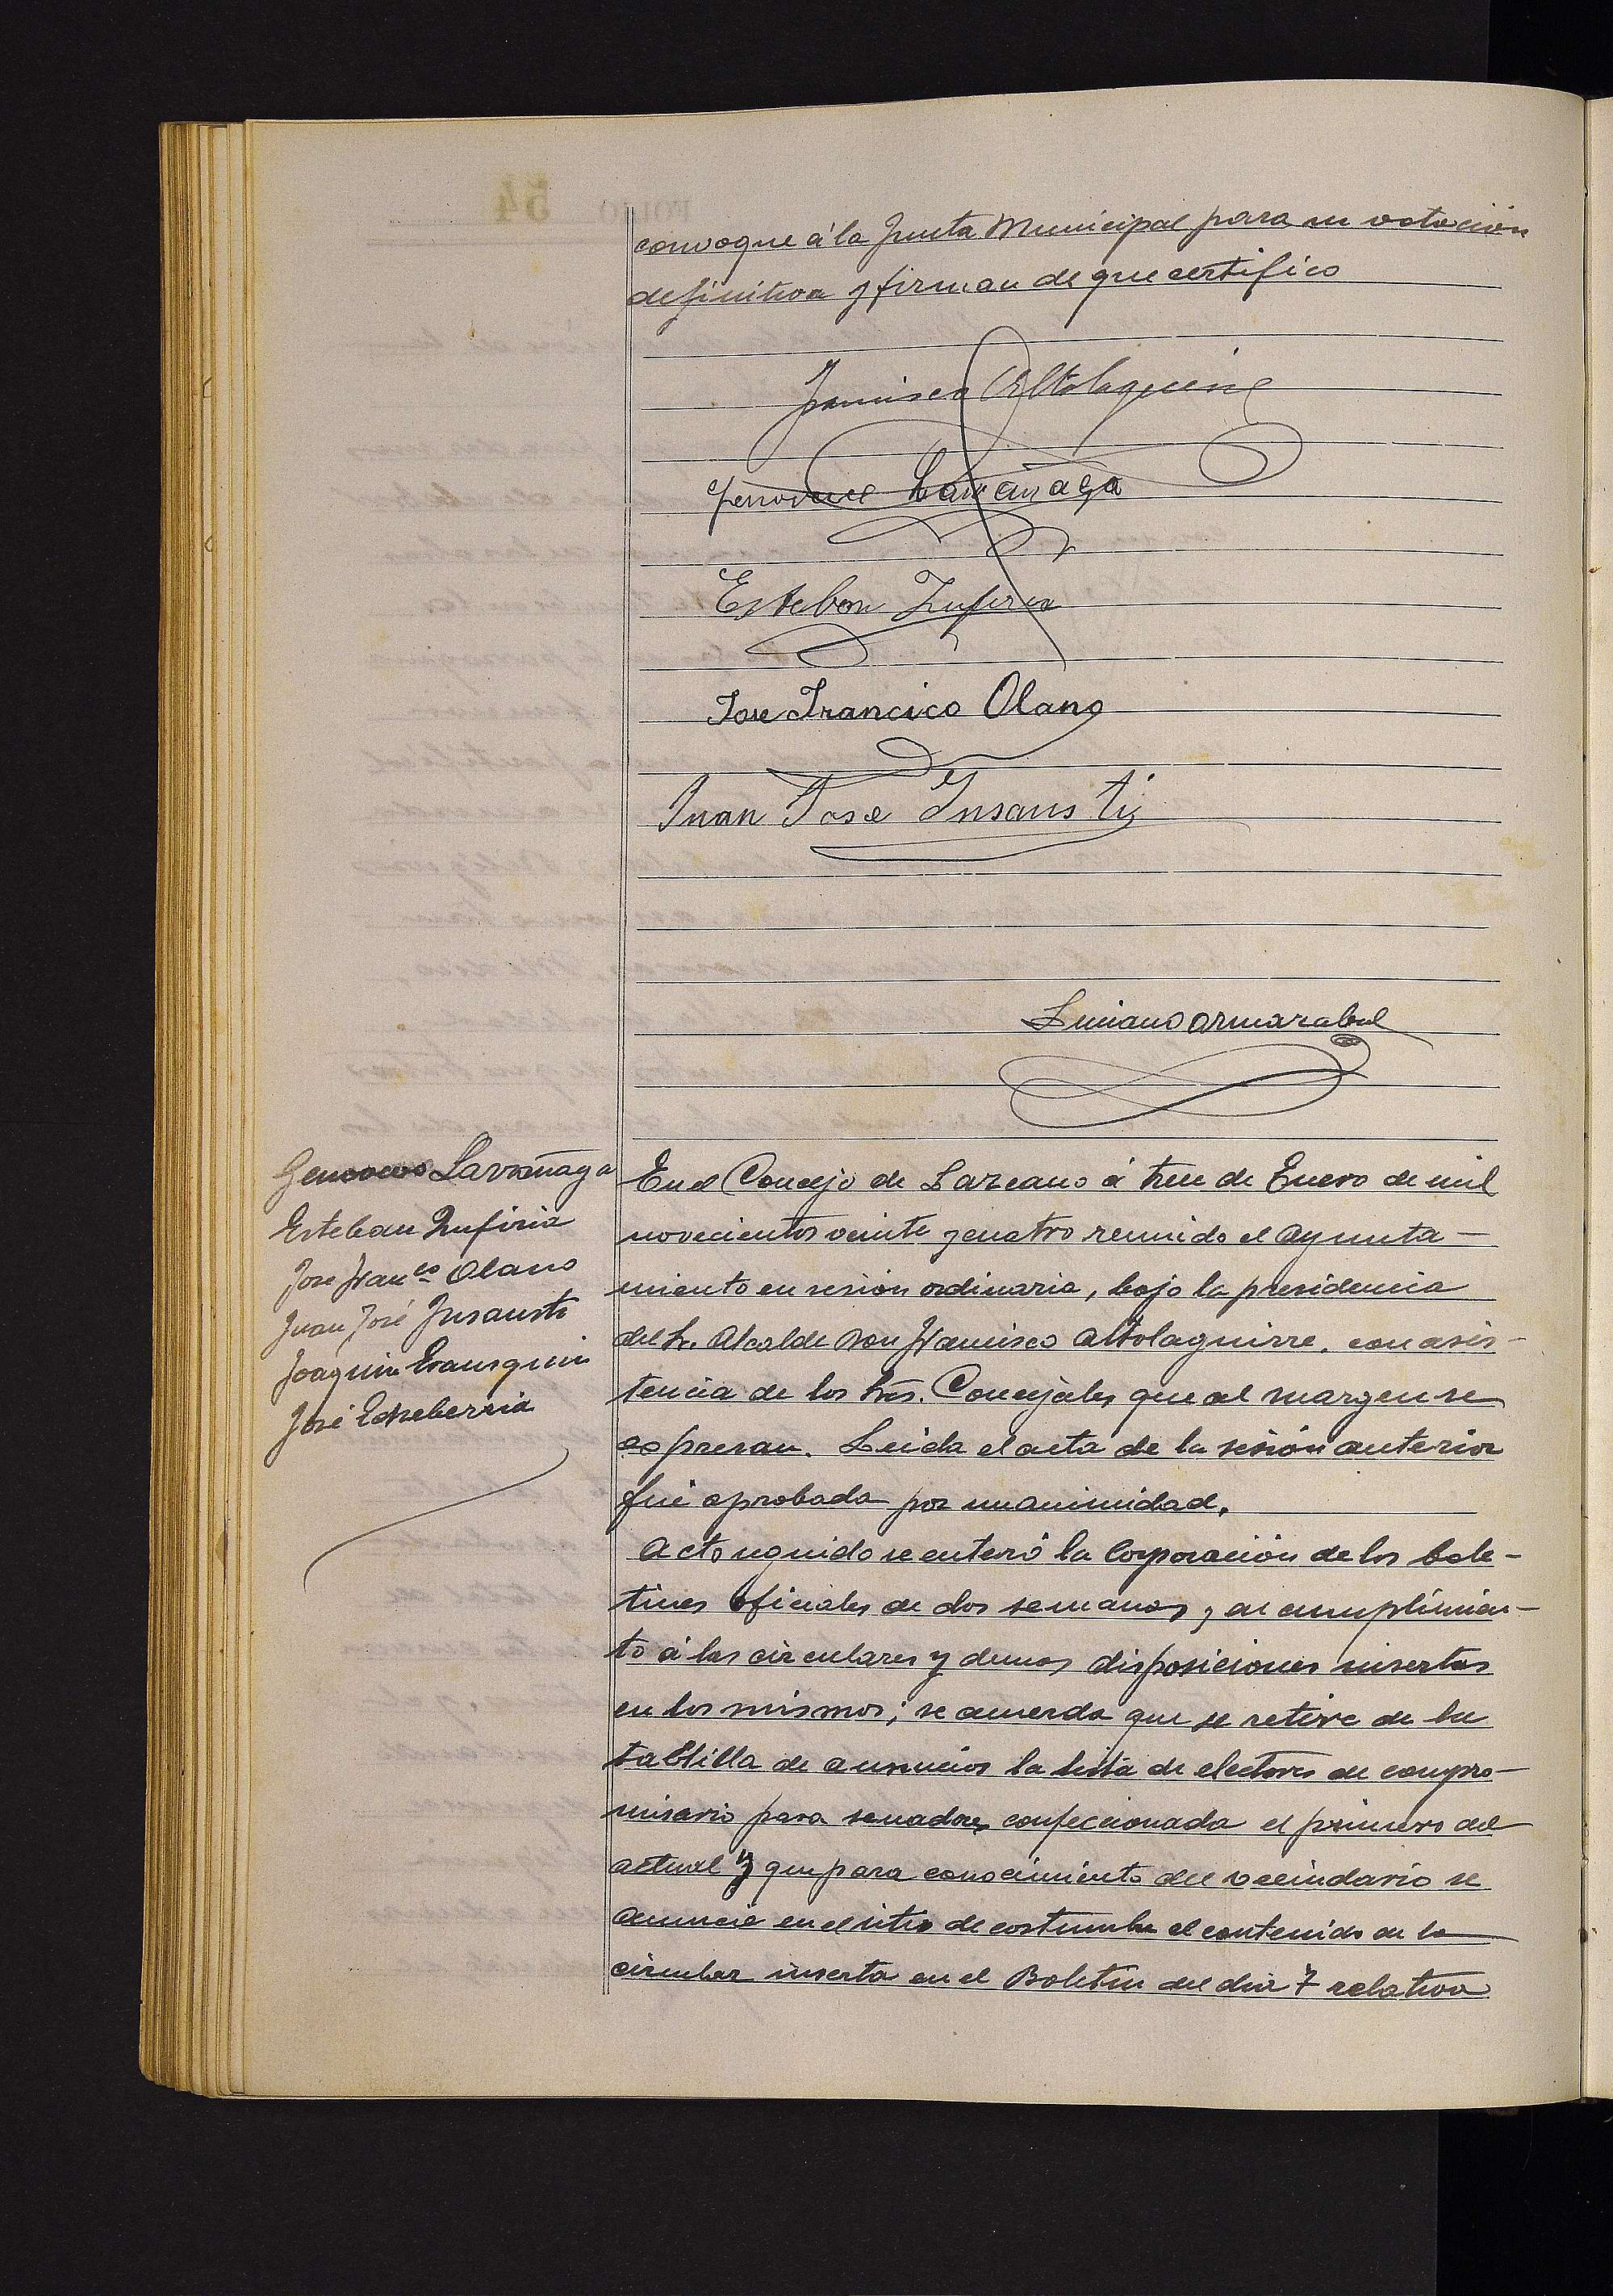 convoque á la Junta Municipal para su votación
definitiva y firman de que certifico
Francisco Altolaguirre
Larrañaga
Esteban Zufiria
Jose Francico Olano
Juan Jose Insausti
Luciano Armarabal
Larrañaga
Esteban Zufiria
Jose Fran<sup>co</sup> Olano
Juan José Insausti
Joaquin Erausquin
José Echeberria
En el Concejo de Lazcano á trece de Enero de mil
novecientos veinte y cuatro reunido el Ayunta-
miento en sesión ordinaria, bajo la presidencia
del Sr. Alcalde Don Francisco Altolaguirre, con asis-
tencia de los Srs. Concejales que al margen se
espresan. Leida el acta de la sesión anterior
fué aprobada por unanimidad.
Acto seguido se enteró la Corporación de los bole-
tines oficiales de dos semanas, en cumplimien-
to á las circulares y demas disposiciones insertas
en los mismos; se acuerda que se retire de la
tablilla de anuncios la lista de electores de compro-
misario para senadores confeccionada el primero del
actual y que para conocimiento del vecindario se
anuncie en el sitio de costumbre el contenido de la
circular inserta en el Boletin del dia 7 relativa